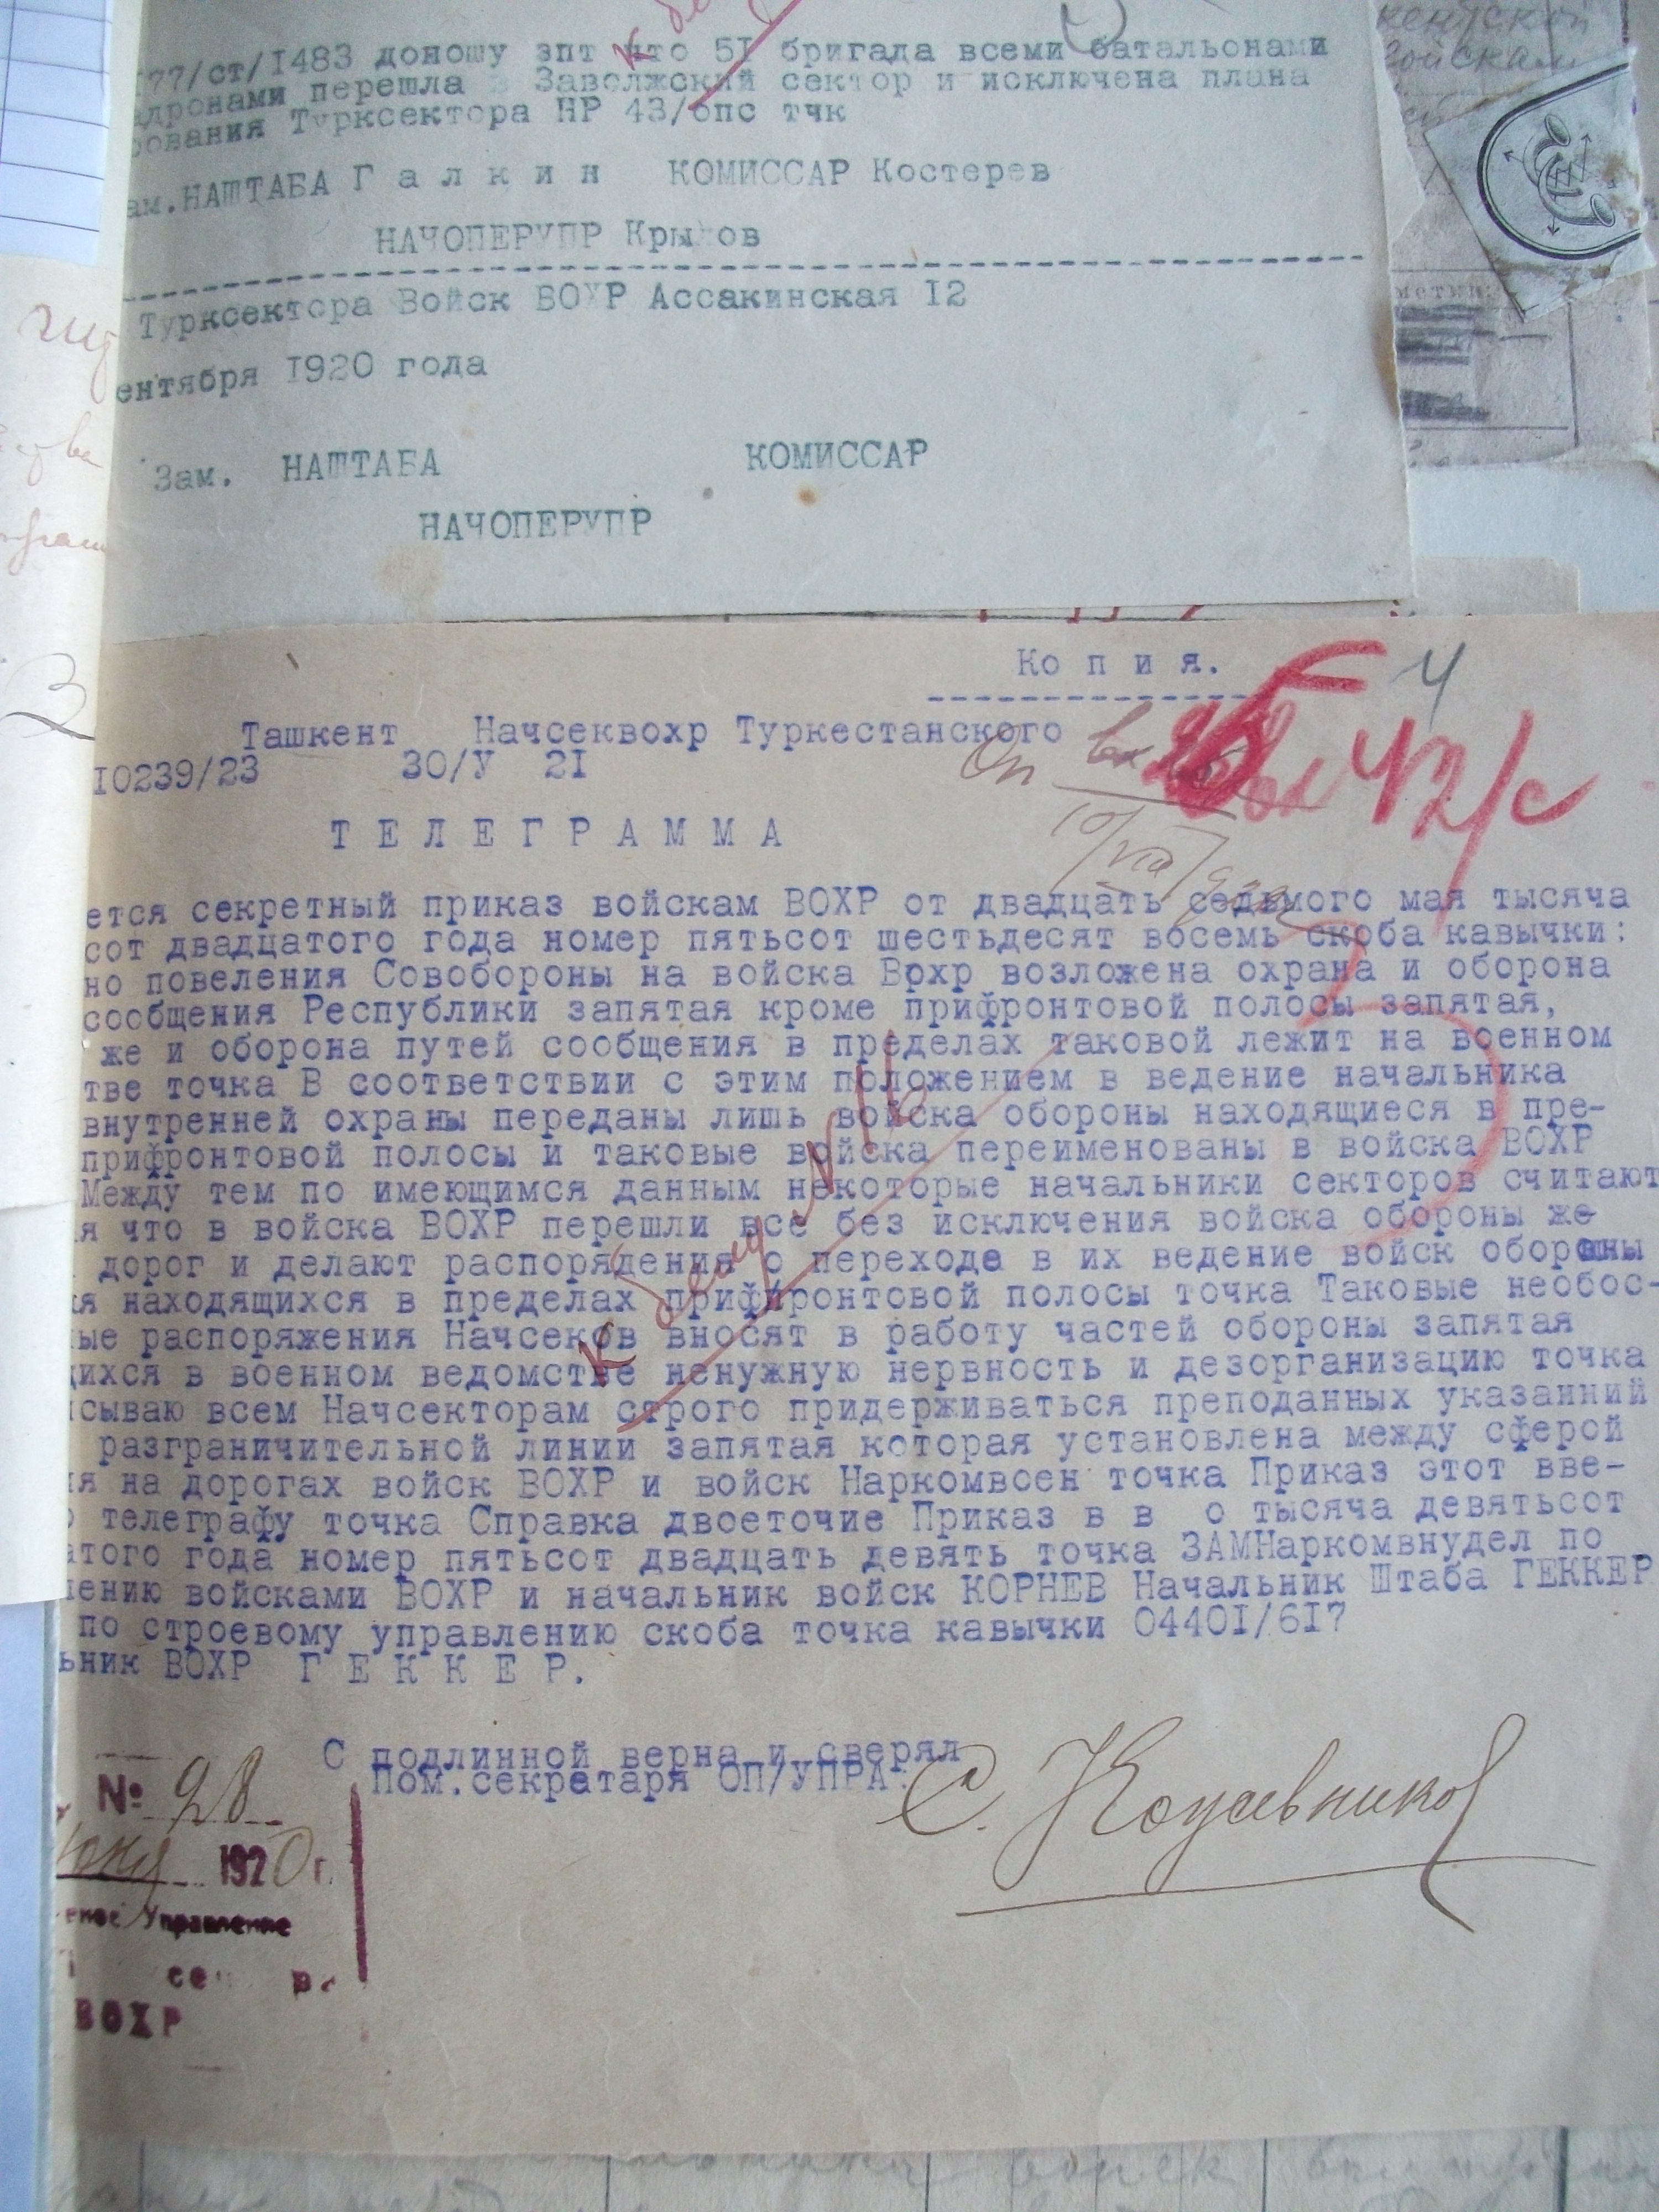 77/ст/I483 доношу зпт что 5I бригада всеми батальонами
дронами перешла в Заволжский сектор и исключена плана
рования Турксектора НР 43/опс тчк
ам.НАШТАБА Г а л к и н КОМИССАР Костерев
НАЧОПЕРУПР Крылов
Турксектора Войск ВОХР Ассакинская I2
ентября I920 года
Зам. НАШТАБА КОМИССАР
НАЧОПЕРУПР
Ко п и я.
4
Ташкент Начсеквохр Туркестанского
I0239/23 30/У 2I
Оп вх
42/с
Т Е Л Е Г Р А М М А
ется секретный приказ войскам ВОХР от двадцать седьмого мая тысяча
сот двадцатого года номер пятьсот шестьдесят восемь скоба кавычки:
но повеления Совобороны на войска Врхр возложена охрана и оборона
сообщения Республики запятая кроме прифронтовой полосы запятая,
же и оборона путей сообщения в пределах таковой лежит на военном
тве точка В соответствии с этим положением в ведение начальника
внутренней охраны переданы лишь войска обороны находящиеся в пре-
прифронтовой полосы и таковые войска переименованы в войска ВОХР
Между тем по имеющимся данным некоторые начальники секторов считают
я что в войска ВОХР перешли все без исключения войска обороны же
дорог и делают распорядения о переходе в их ведение войск обороны
я находящихся в пределах прифронтовой полосы точка Таковые необос-
ые распоряжения Начсеков вносят в работу частей обороны запятая
щихся в военном ведомстве ненужную нервность и дезорганизацию точка
исываю всем Начсекторам строго придерживаться преподанных указанний
разграничительной линии запятая которая установлена между сферой
ия на дорогах войск ВОХР и войск Наркомвоен точка Приказ этот вве-
о телеграфу точка Справка двоеточие Приказ в в о тысяча девятьсот
атого года номер пятьсот двадцать девять точка ЗАМНаркомвнудел по
лению войсками ВОХР и начальник войск КОРНЕВ Начальник Штаба ГЕККЕР
по строевому управлению скоба точка кавычки 0440I/6I7
ьник ВОХР Г Е К К Е Р.
С подлинной верна и сверял
Пом.секратаря ОП/УПРА
№ 98
июня 1920 г.
Управление
ВОХР